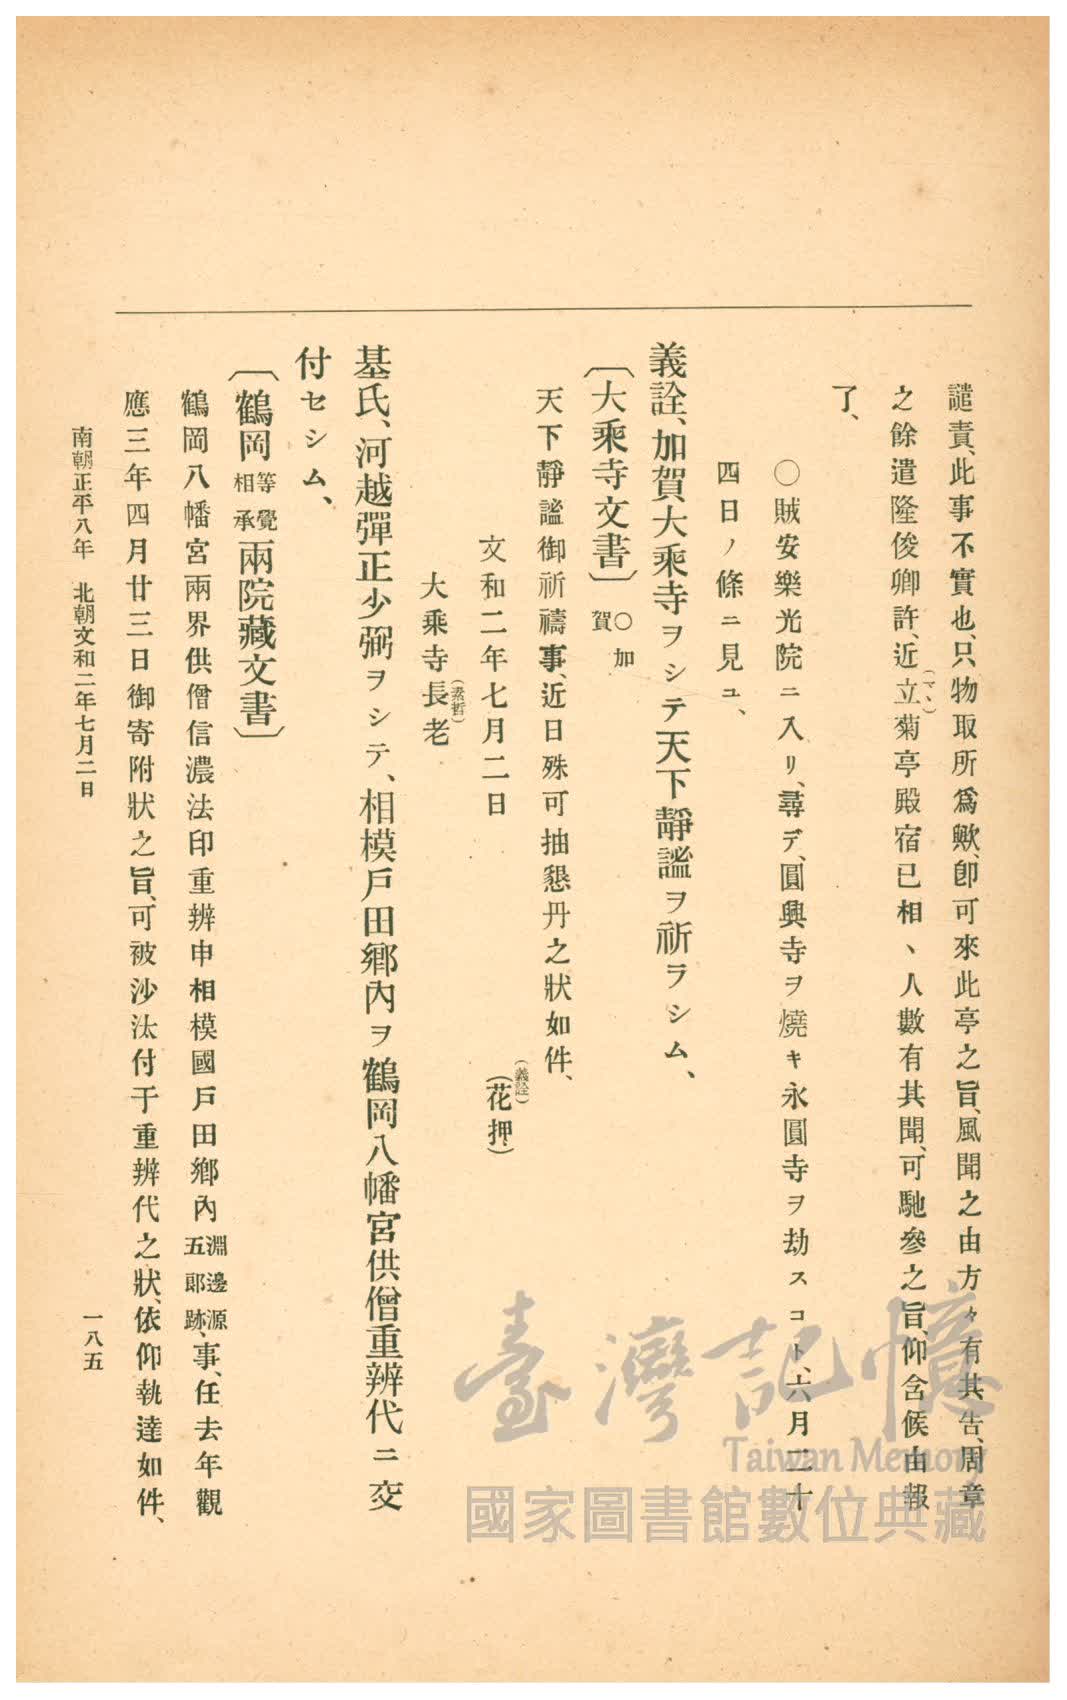 譴責、此事不實也、只物取所爲歟、卽可來此亭之旨、風聞之由方々有其告、周章
之餘遣隆俊卿許、近立菊亭殿宿已相、人數有其聞、可馳參之旨、仰含候由報
(マヽ)
了、
〇賊安樂光院ニ入リ、尋デ、圓興寺ヲ燒キ永圓寺ヲ劫スコト、六月二十
四日ノ條ニ見ユ、
義詮、加賀大乘寺ヲシテ天下靜謐ヲ祈ラシム、
〔大乘寺文書〕〇加賀
天下靜謐御祈禱事、近日殊可抽懇丹之狀如件、
文和二年七月二日
(義詮)
(花押)
大乘寺長老
(素哲)
基氏、河越彈正少弼ヲシテ、相模戶田鄕內ヲ鶴岡八幡宮供僧重辨代ニ交
付セシム、
〔鶴岡等覺相承兩院藏文書〕
鶴岡八幡宮兩界供僧信濃法印重辨申相模國戶田鄕內淵邊源五郞跡、事、任去年觀
應三年四月廿三日御寄附狀之旨、可被沙汰付于重辨代之狀、依仰執達如件、
南朝正平八年 北朝文和二年七月二日
一八五
臺灣記憶
Taiwan Memory
國家圖書館數位典藏